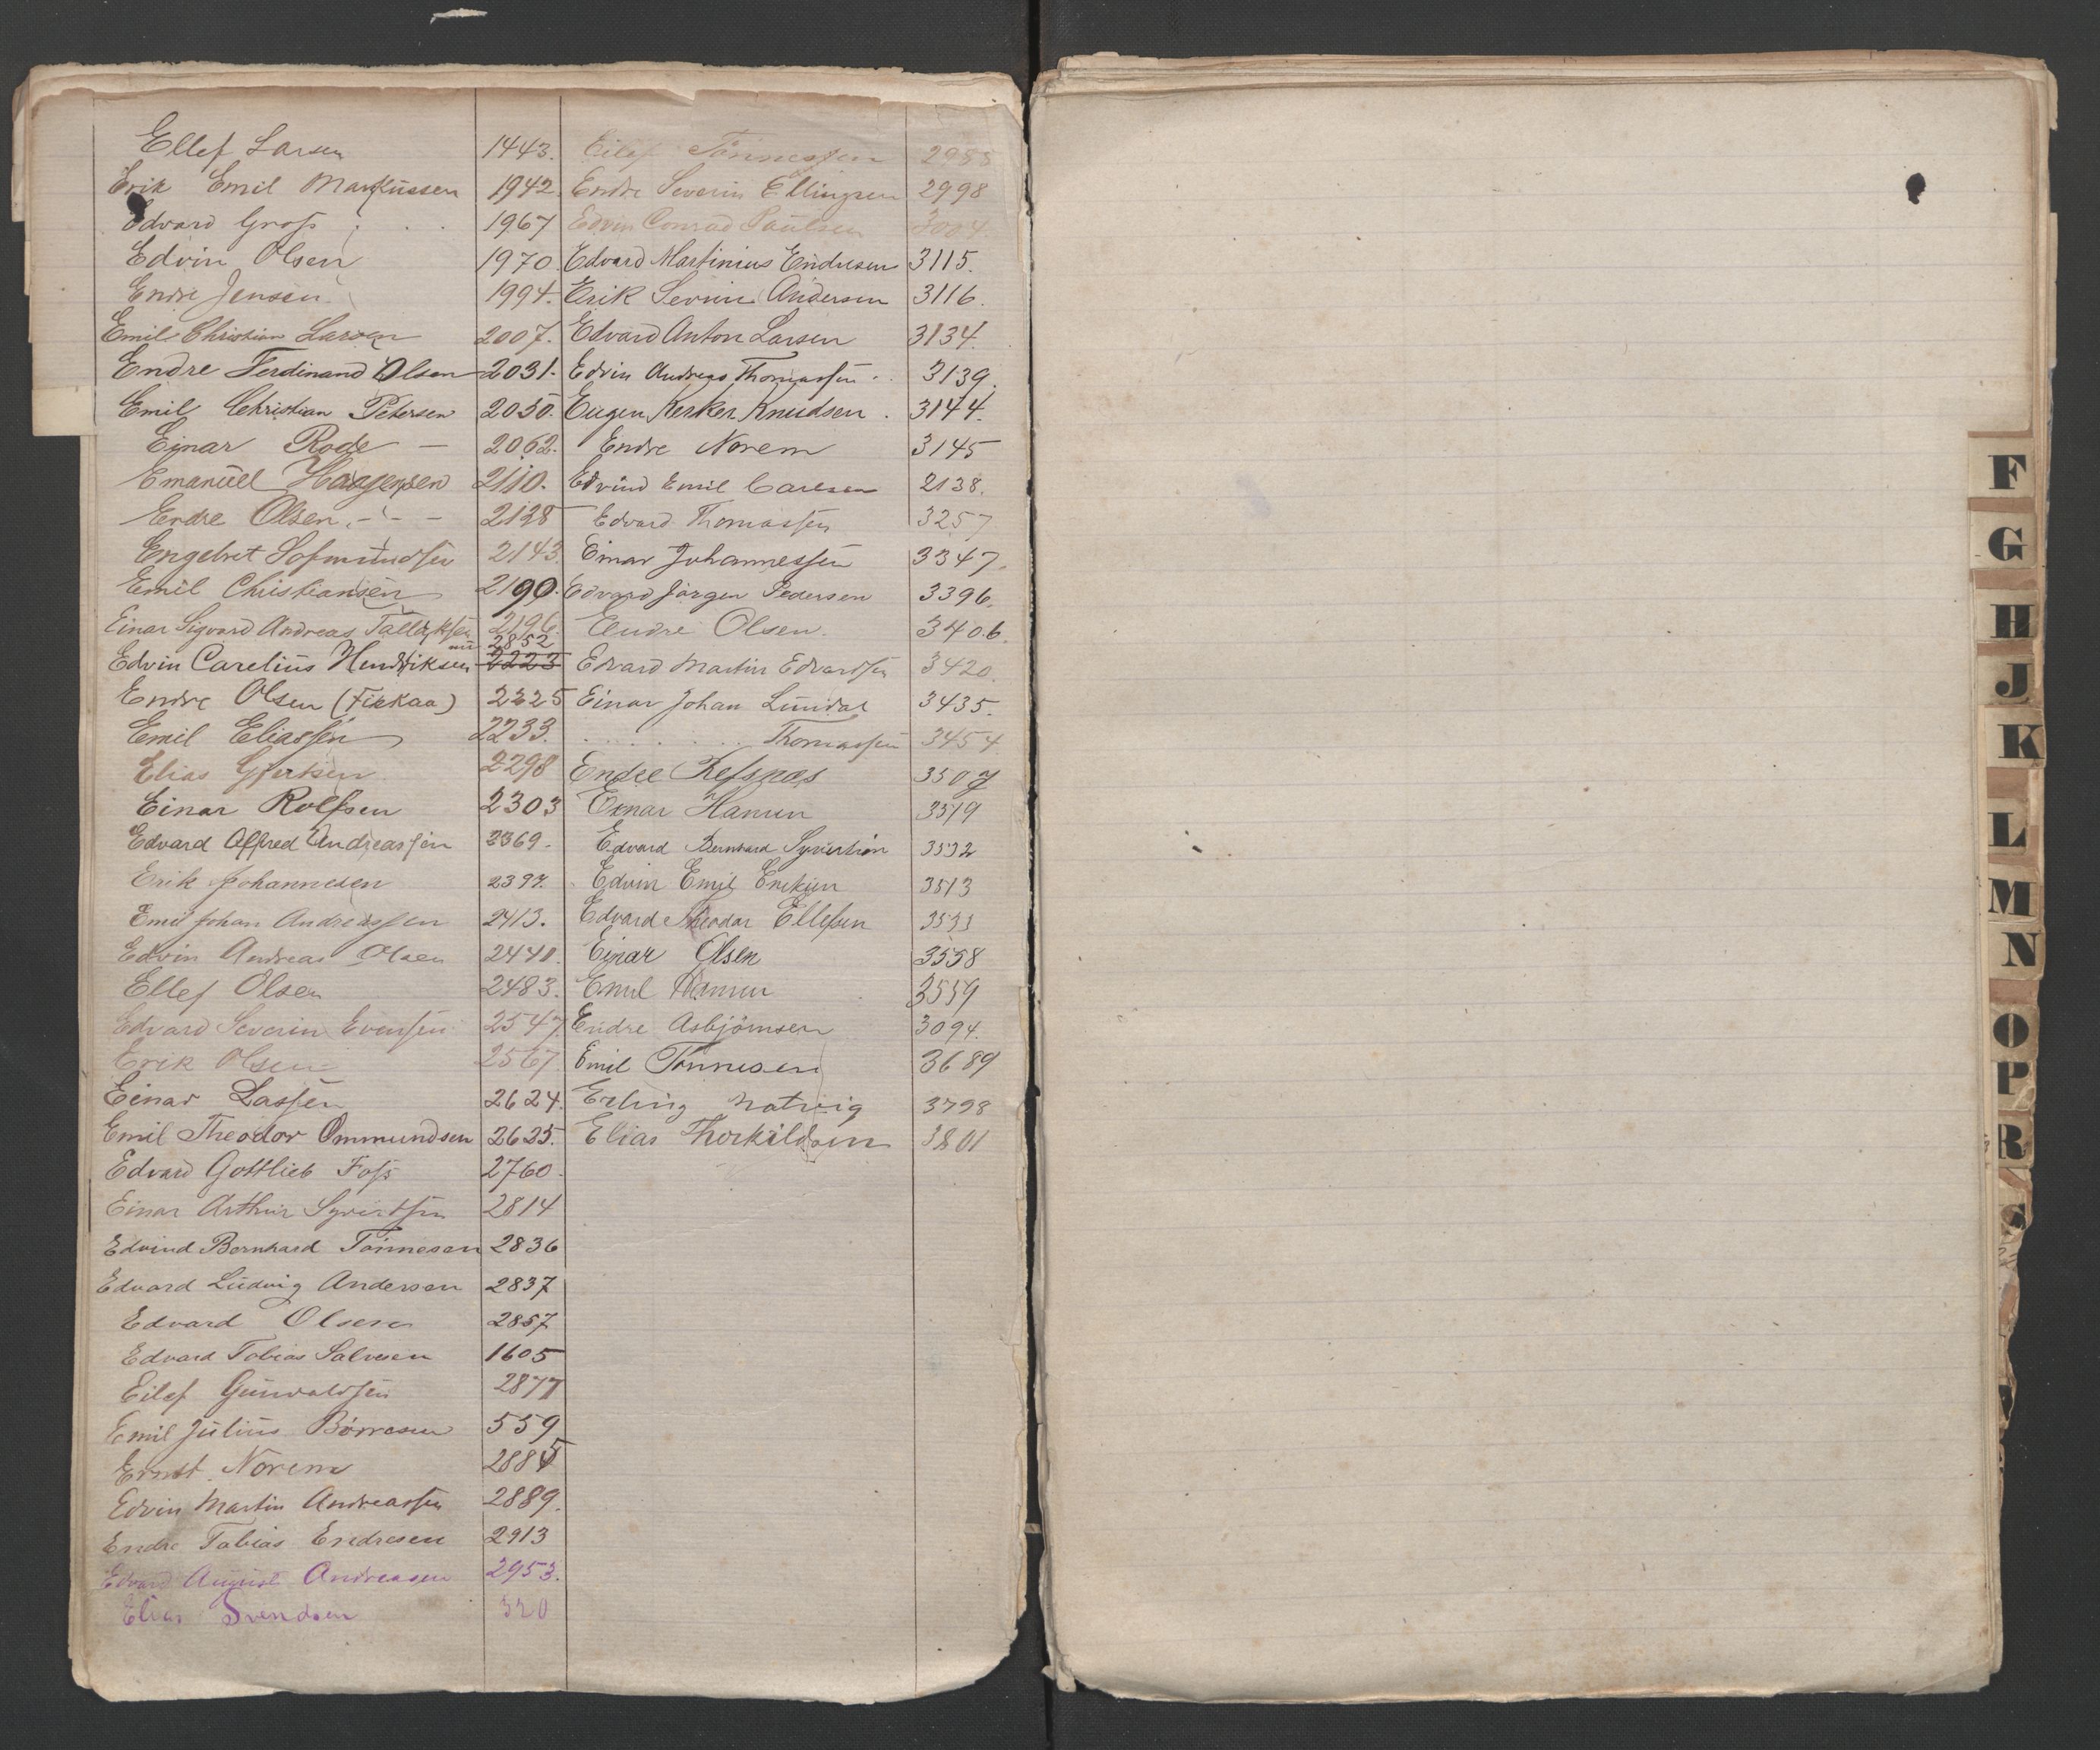 Ellef Larsen 1443.
Erik Emil Markussen 1942.
Edvard Gross 1967
Edvin Olsen 1970.
Endre Jensen 1994.
Emil Christian Larsen 2007.
Endre Ferdinand Olsen 2031.
Emil Christian Petersen 2050.
Einar Rode 2062.
Emanuel Haagensen 2110.
Endre Olsen 2128
Engebret Sofmundsen 2143
Emil Christiansen 2190.
Einar Sigvard Andreas Tallaksen 2196.
Edvin Carelius Hendriksen 2223 2852
Endre Olsen (Fiskaa) 2225
Emil Eliassen 2233.
Elias Gjertsen 2298
Einar Rolfsen 2303
Edvard Alfred Andreassen 2369.
Erik Johannesen 2397.
Emil Johan Andreassen 2413.
Edvin Andreas Olsen 2440.
Ellef Olsen 2483.
Edvard Severin Evensen 2547
Erik Olsen 2567
Einar Lassen 2624.
Emil Theodor Ommundsen 2625.
Edvard Gottlieb Foss 2760.
Einar Arthur Syvertsen 2814
Edvind Bernhard Tönnesen 2836
Edvard Ludvig Andersen 2837
Edvard Olsen 2857
Edvard Tobias Salvesen 1605
Eilef Gunvaldsen 2877
Emil Julius Börresen 559
Ernst Norem 2885
Edvin Martin Andreassen 2889.
Endre Tobias Endresen 2913
Edvard August Andreasen 2953.
Elias Svendsen 320
Eilef Tönnessen 2988
Endre Severin Ellingsen 2998
Edvin Conrad Paulsen 3004
Edvard Martinius Endresen 3115.
Erik Severin Andersen 3116.
Edvard Anton Larsen 3134.
Edvin Andreas Thomassen 3139.
Eugen Kerker Knudsen 3144.
Endre Norem 3145
Edvind Emil Carlsen 2138.
Edvard Thomassen 3257
Einar Johannessen 3347.
Edvard Jörgen Pedersen 3396.
Endre Olsen. 3406.
Edvard Martin Edvardsen 3420.
Einar Johan Lundal 3435.
Thomassen 3454
Endre Refsnes 3507
Einar Hanun 3519
Edvard Bernhard Syvertsen 3532
Edvin Emil Eriksen 3513
Edvard Theodor Ellefsen 3533
Einar Olsen 3558
Emil 3559
Endre Asbjörnsen 3094.
Emil Tönnesen 3689
Erling Natvig 3798
Elias Thorkildsen 3801
F
G
H
J
K
L
M
N
O
P
R
S